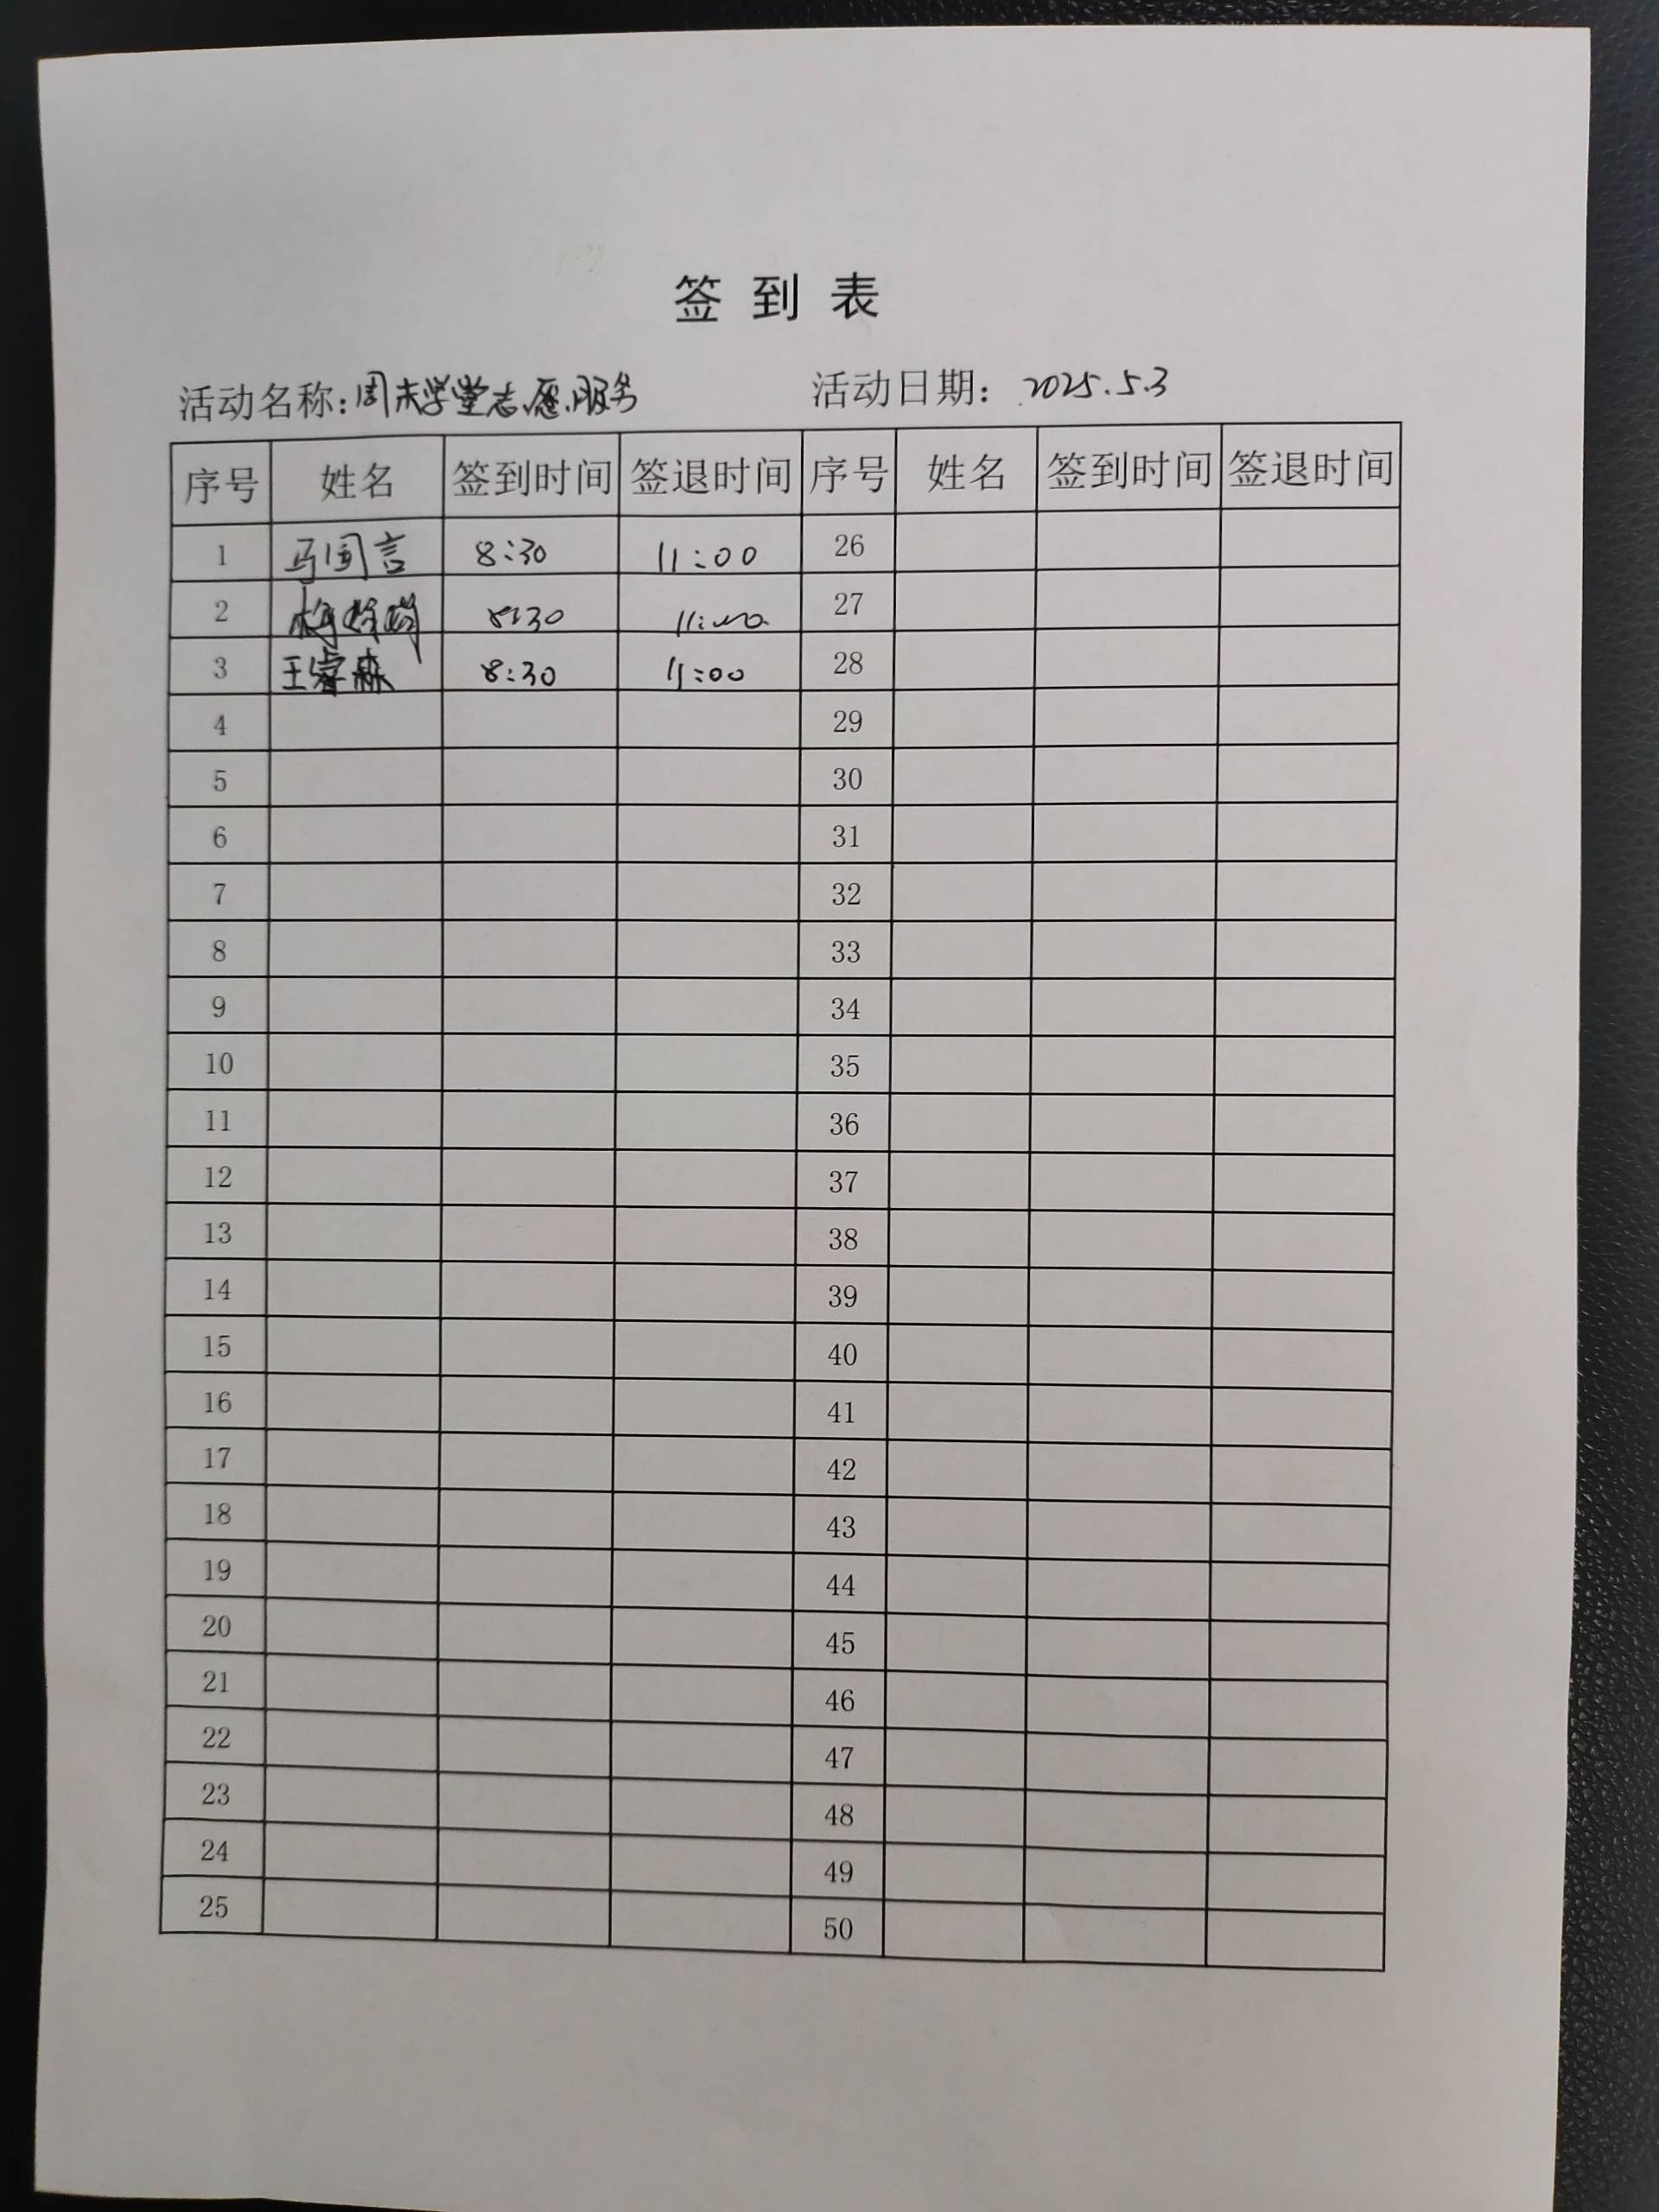 签到表
活动名称：周末学堂志愿服务 活动日期： 2025.5.3
序号 姓名 签到时间 签退时间 序号 姓名 签到时间 签退时间
1 马国言 8:30 11:00 26
2 8:30 11:00 27
3 王睿森 8:30 11:00 28
4 29
5 30
6 31
7 32
8 33
9 34
10 35
11 36
12 37
13 38
14 39
15 40
16 41
17 42
18 43
19 44
20 45
21 46
22 47
23 48
24 49
25 50